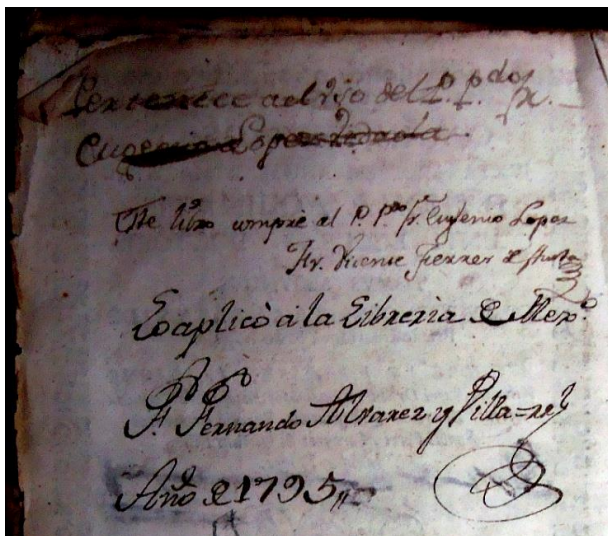 Pertenece al vso del P. P.dor fr.
Eugenio Lopez
Este libro compré al P. P.do fr. Eugenio Lopez
Fr. Vicente Ferrer
Lo aplicò à la Libreria de Mexo.
Fr. Fernando Alvarez y Villa-rel
Año de 1795,,